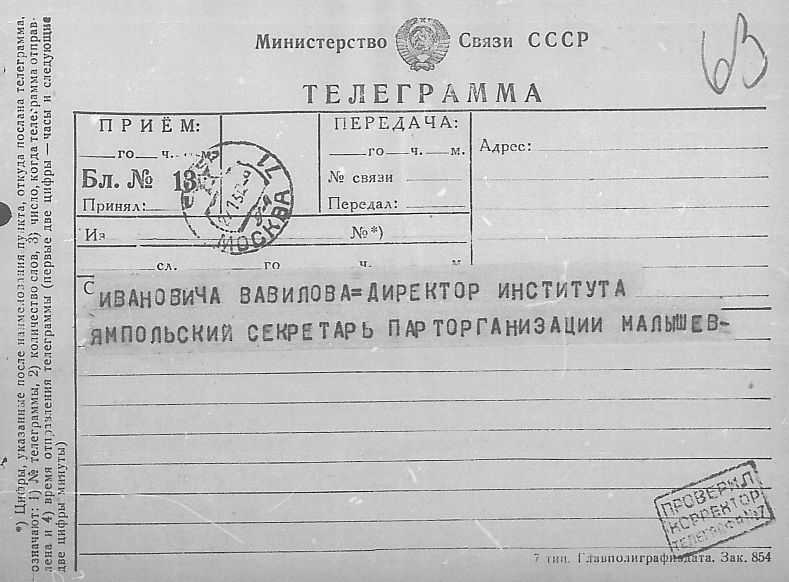 63
Министерство Связи СССР
ТЕЛЕГРАММА
ПРИЁМ:
го ч. м.
Бл. № 13
Принял:
ПЕРЕДАЧА:
го ч. м.
№ связи
Передал:
Адрес:
Из №*)
сл. го ч. м
МОСКВА
С
ИВАНОВИЧА ВАВИЛОВА=ДИРЕКТОР ИНСТИТУТА
ЯМПОЛЬСКИЙ СЕКРЕТАРЬ ПАРТОРГАНИЗАЦИИ МАЛЫШЕВ-
*) Цифры, указанные после наименования пункта, откуда послана телеграмма,
означают: 1) № телеграммы, 2) количество слов, 3) число, когда телеграмма отправ-
лена и 4) время отправления телеграммы (первые две цифры — часы и следующие
две цифры минуты)
ПРОВЕРИЛ
КОРРЕКТОР
7 тип. Главполиграфиздата. Зак. 854